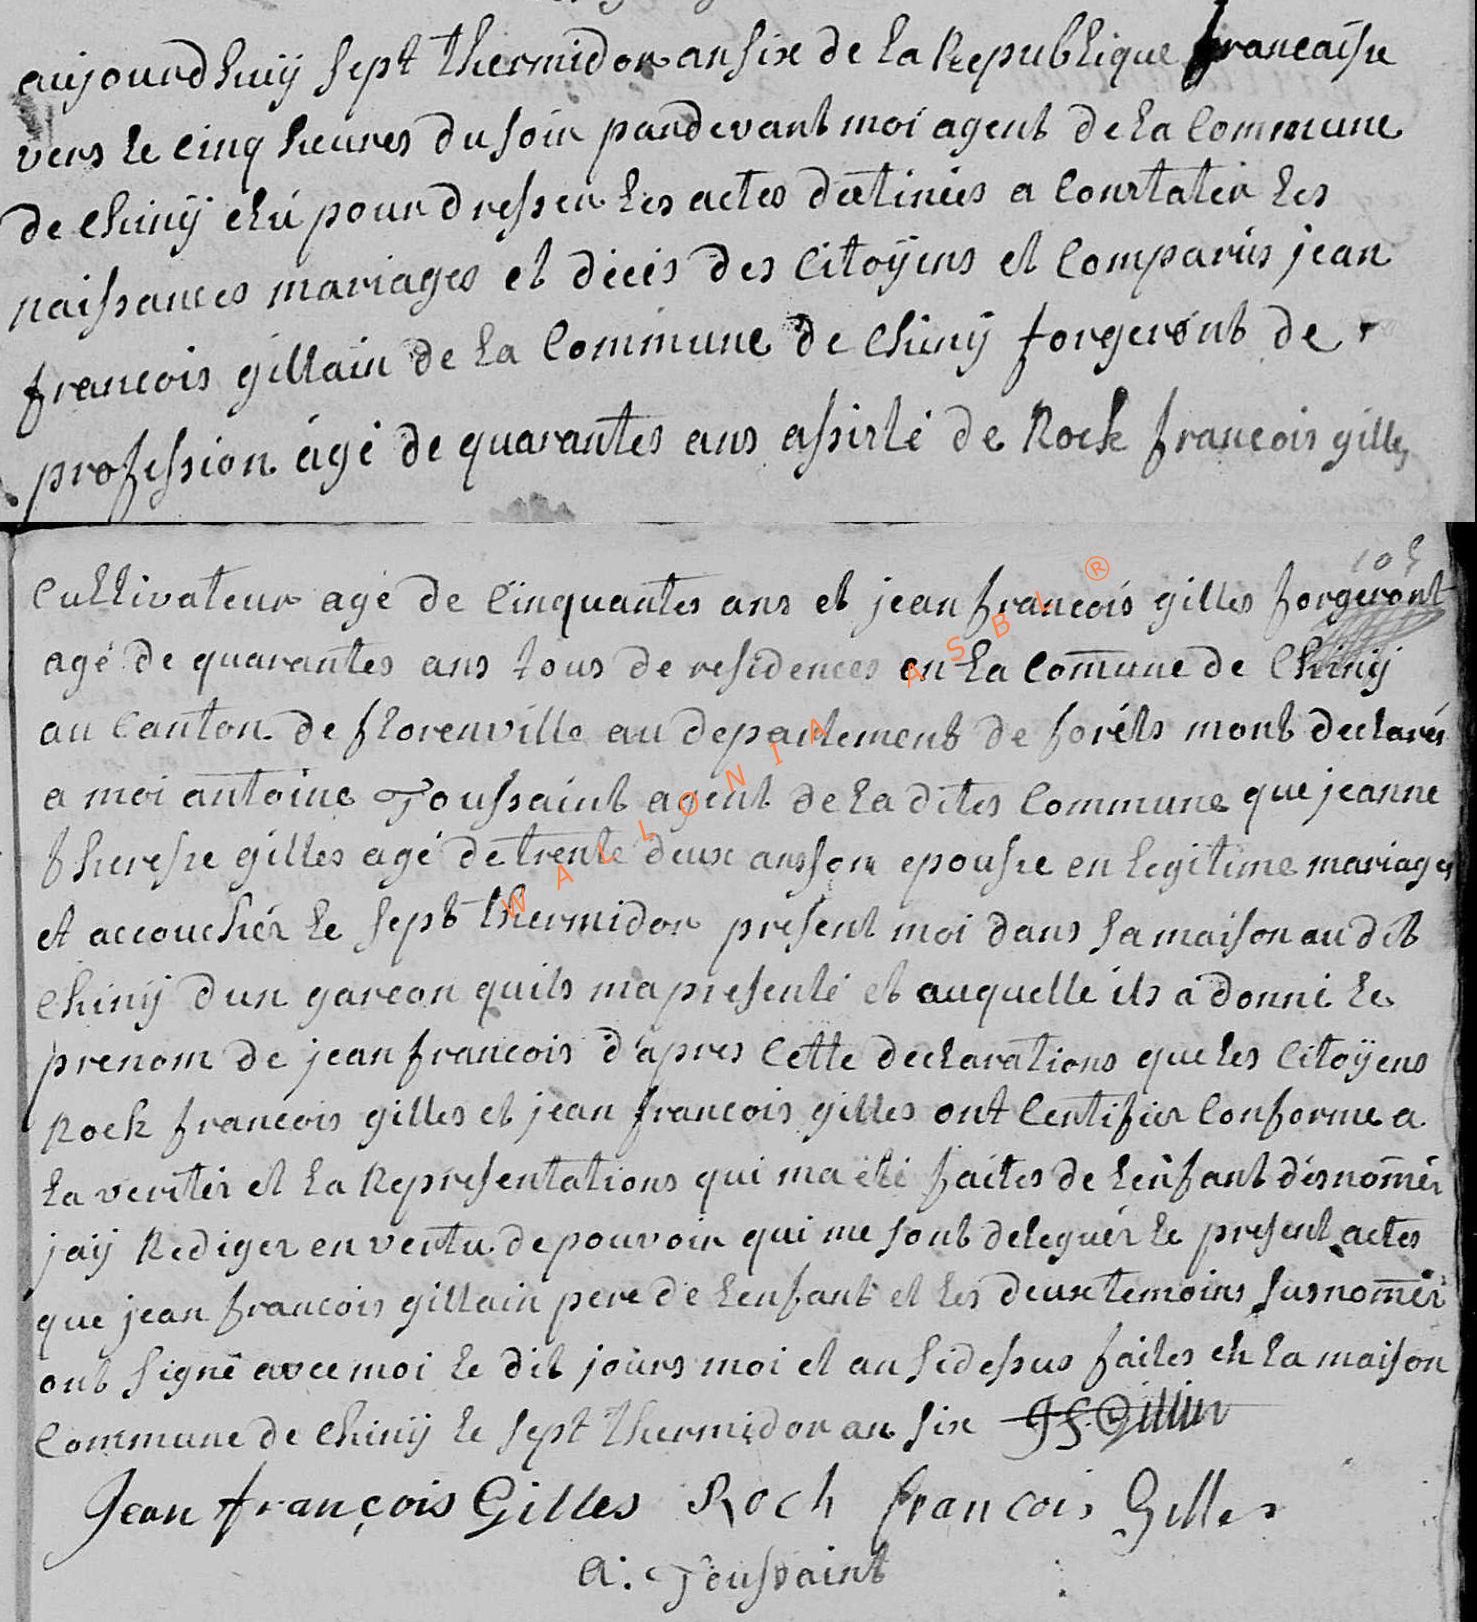 aujourdhuÿ sept thermidor an six de la Republique francaise
vers le cinq heures du soir pardevant moi agent de la Commune
de Chinÿ elú pour dresser les actes détinées a Constater les
naissances mariages et décés des Citoÿens et Comparús jean
francois gillain de la Commune de Chinÿ forgeront de
profession ágé de quarantes ans assisté de Rock francois gilles
105
Cultivateur agé de Cinquantes ans et jean francois gilles forgeront
agé de quarantes ans tous de residences en la Comune de Chinÿ
au Canton de florenville au departement de foréts mont declarés
a moi antoine Toussaint agent de la dites Commune que jeanne
therese gilles agé de trente deux ans son epouse en legitime mariages
et accouchér le sept thermidor present moi dans sa maison au dit
Chinÿ dun garcon quils ma presenté et auquelle ils a donné le
prenom de jean francois d'apres Cette declarations que les Citoÿens
Rock francois gilles et jean francois gilles ont Certifier Conforme a
la veritér et la Representations qui ma été faites de lenfant dénomér
jaÿ Rediger en vertu de pouvoir qui me sont deleguér le present actes
que jean francois gillain pere de lenfant et les deux temoins susnomér
ont signé avec moi le dit jours moi et an sidessus faites en la maison
Commune de Chinÿ le sept thermidor an six JF Gillin
Jean françois Gilles Roch francois Gilles
a. Toussaint
WALLONIA ASBL ®